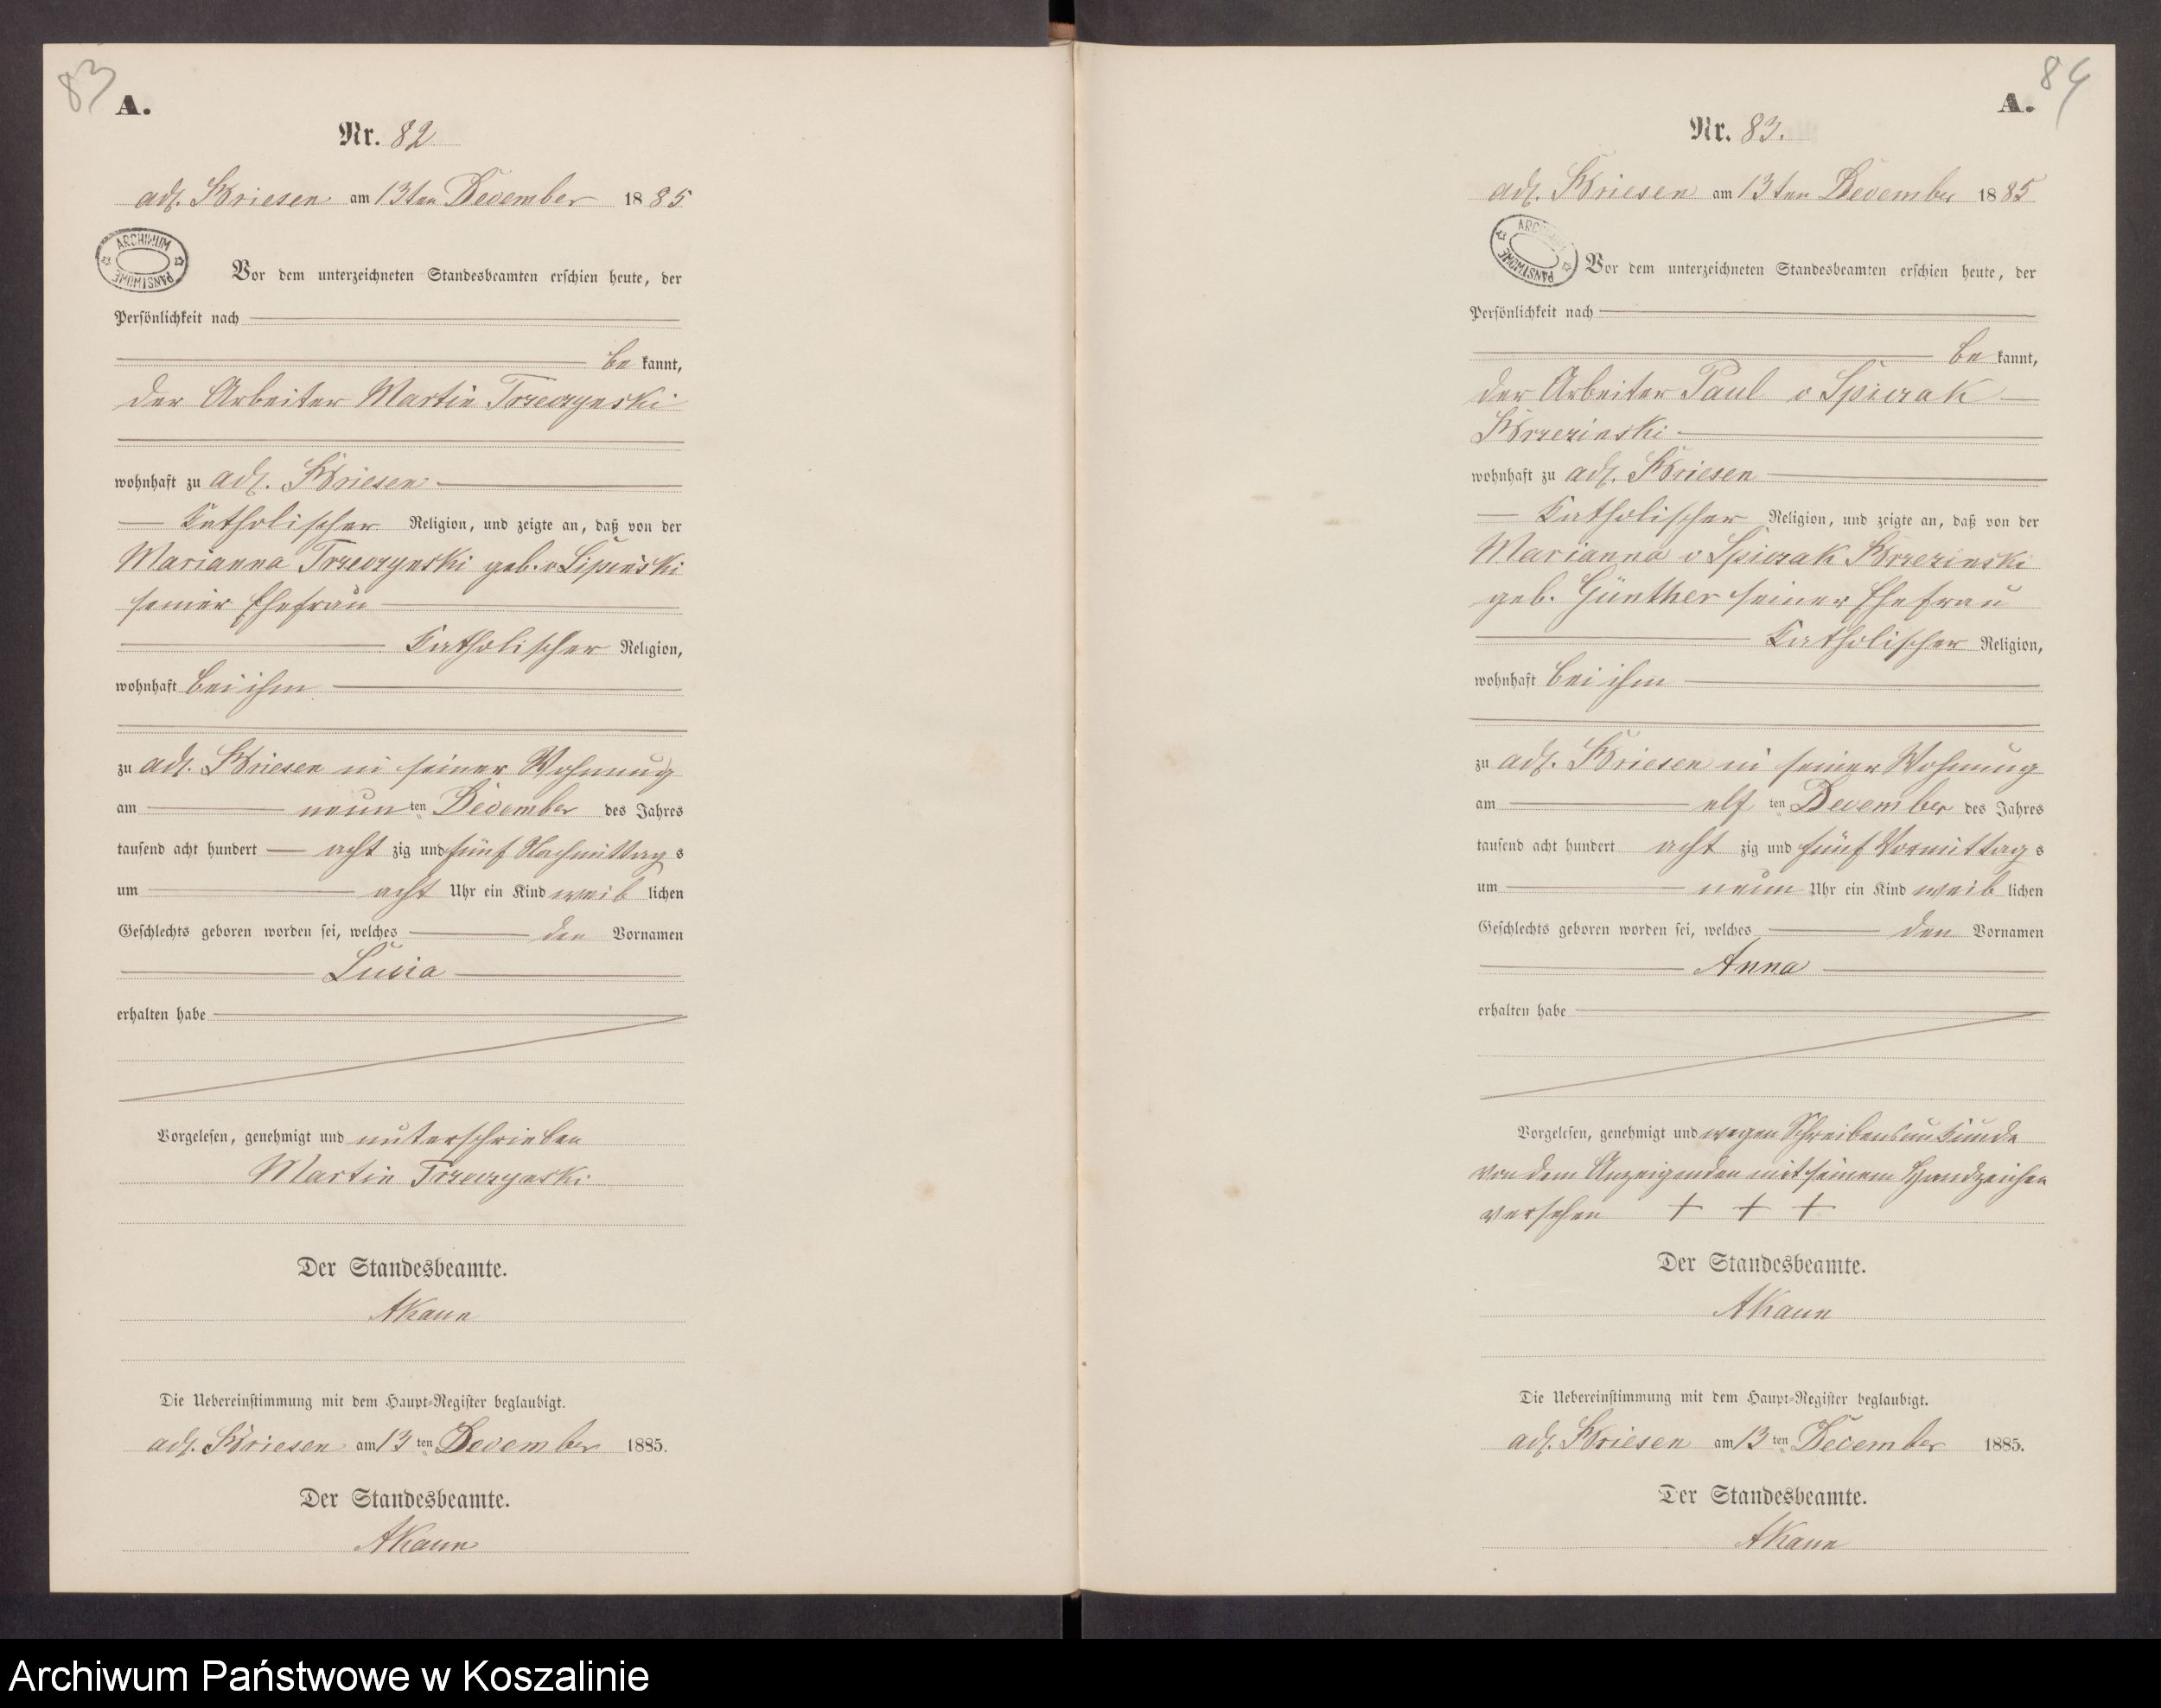 83
A.
Nr. 82
adl. Briesen am 13ten December 1885
ARCHIWUM PAŃSTWOWE
Vor dem unterzeichneten Standesbeamten erschien heute, der
Persönlichkeit nach
be kannt,
der Arbeiter Martin Trzeczynski
wohnhaft zu adl. Briesen
katholischer Religion, und zeigte an, daß von der
Marianna Trzeczynski geb. v Lipinski
seiner Ehefrau
katholischer Religion,
wohnhaft bei ihm
zu adl. Briesen in seiner Wohnung
am neun ten December des Jahres
tausend acht hundert acht zig und fünf Nachmittag s
um acht Uhr ein Kind weib lichen
Geschlechts geboren worden sei, welches den Vornamen
Lucia
erhalten habe
Vorgelesen, genehmigt und unterschrieben
Martin Trzeczynski
Der Standesbeamte.
AKaun
Die Uebereinstimmung mit dem Haupt-Register beglaubigt.
adl. Briesen am 13 ten December 1885.
Der Standesbeamte.
AKaun
84
A.
Nr. 83.
adl. Briesen am 13ten December 1885
ARCHIWUM PAŃSTWOWE
Vor dem unterzeichneten Standesbeamten erschien heute, der
Persönlichkeit nach
be kannt,
der Arbeiter Paul v Spiczak
Brzezinski
wohnhaft zu adl. Briesen
katholischer Religion, und zeigte an, daß von der
Marianna v Spiczak Brzezinski
geb. Günther seiner Ehefrau
katholischer Religion,
wohnhaft bei ihm
zu adl. Briesen in seiner Wohnung
am elf ten December des Jahres
tausend acht hundert acht zig und fünf Vormittag s
um neun Uhr ein Kind weib lichen
Geschlechts geboren worden sei, welches den Vornamen
Anna
erhalten habe
Vorgelesen, genehmigt und wegen Schreibensunkunde
von dem Anzeigenden mit seinem Handzeichen
versehen + + +
Der Standesbeamte.
AKaun
Die Uebereinstimmung mit dem Haupt-Register beglaubigt.
adl. Briesen am 13 ten December 1885.
Der Standesbeamte.
AKaun
Archiwum Państwowe w Koszalinie